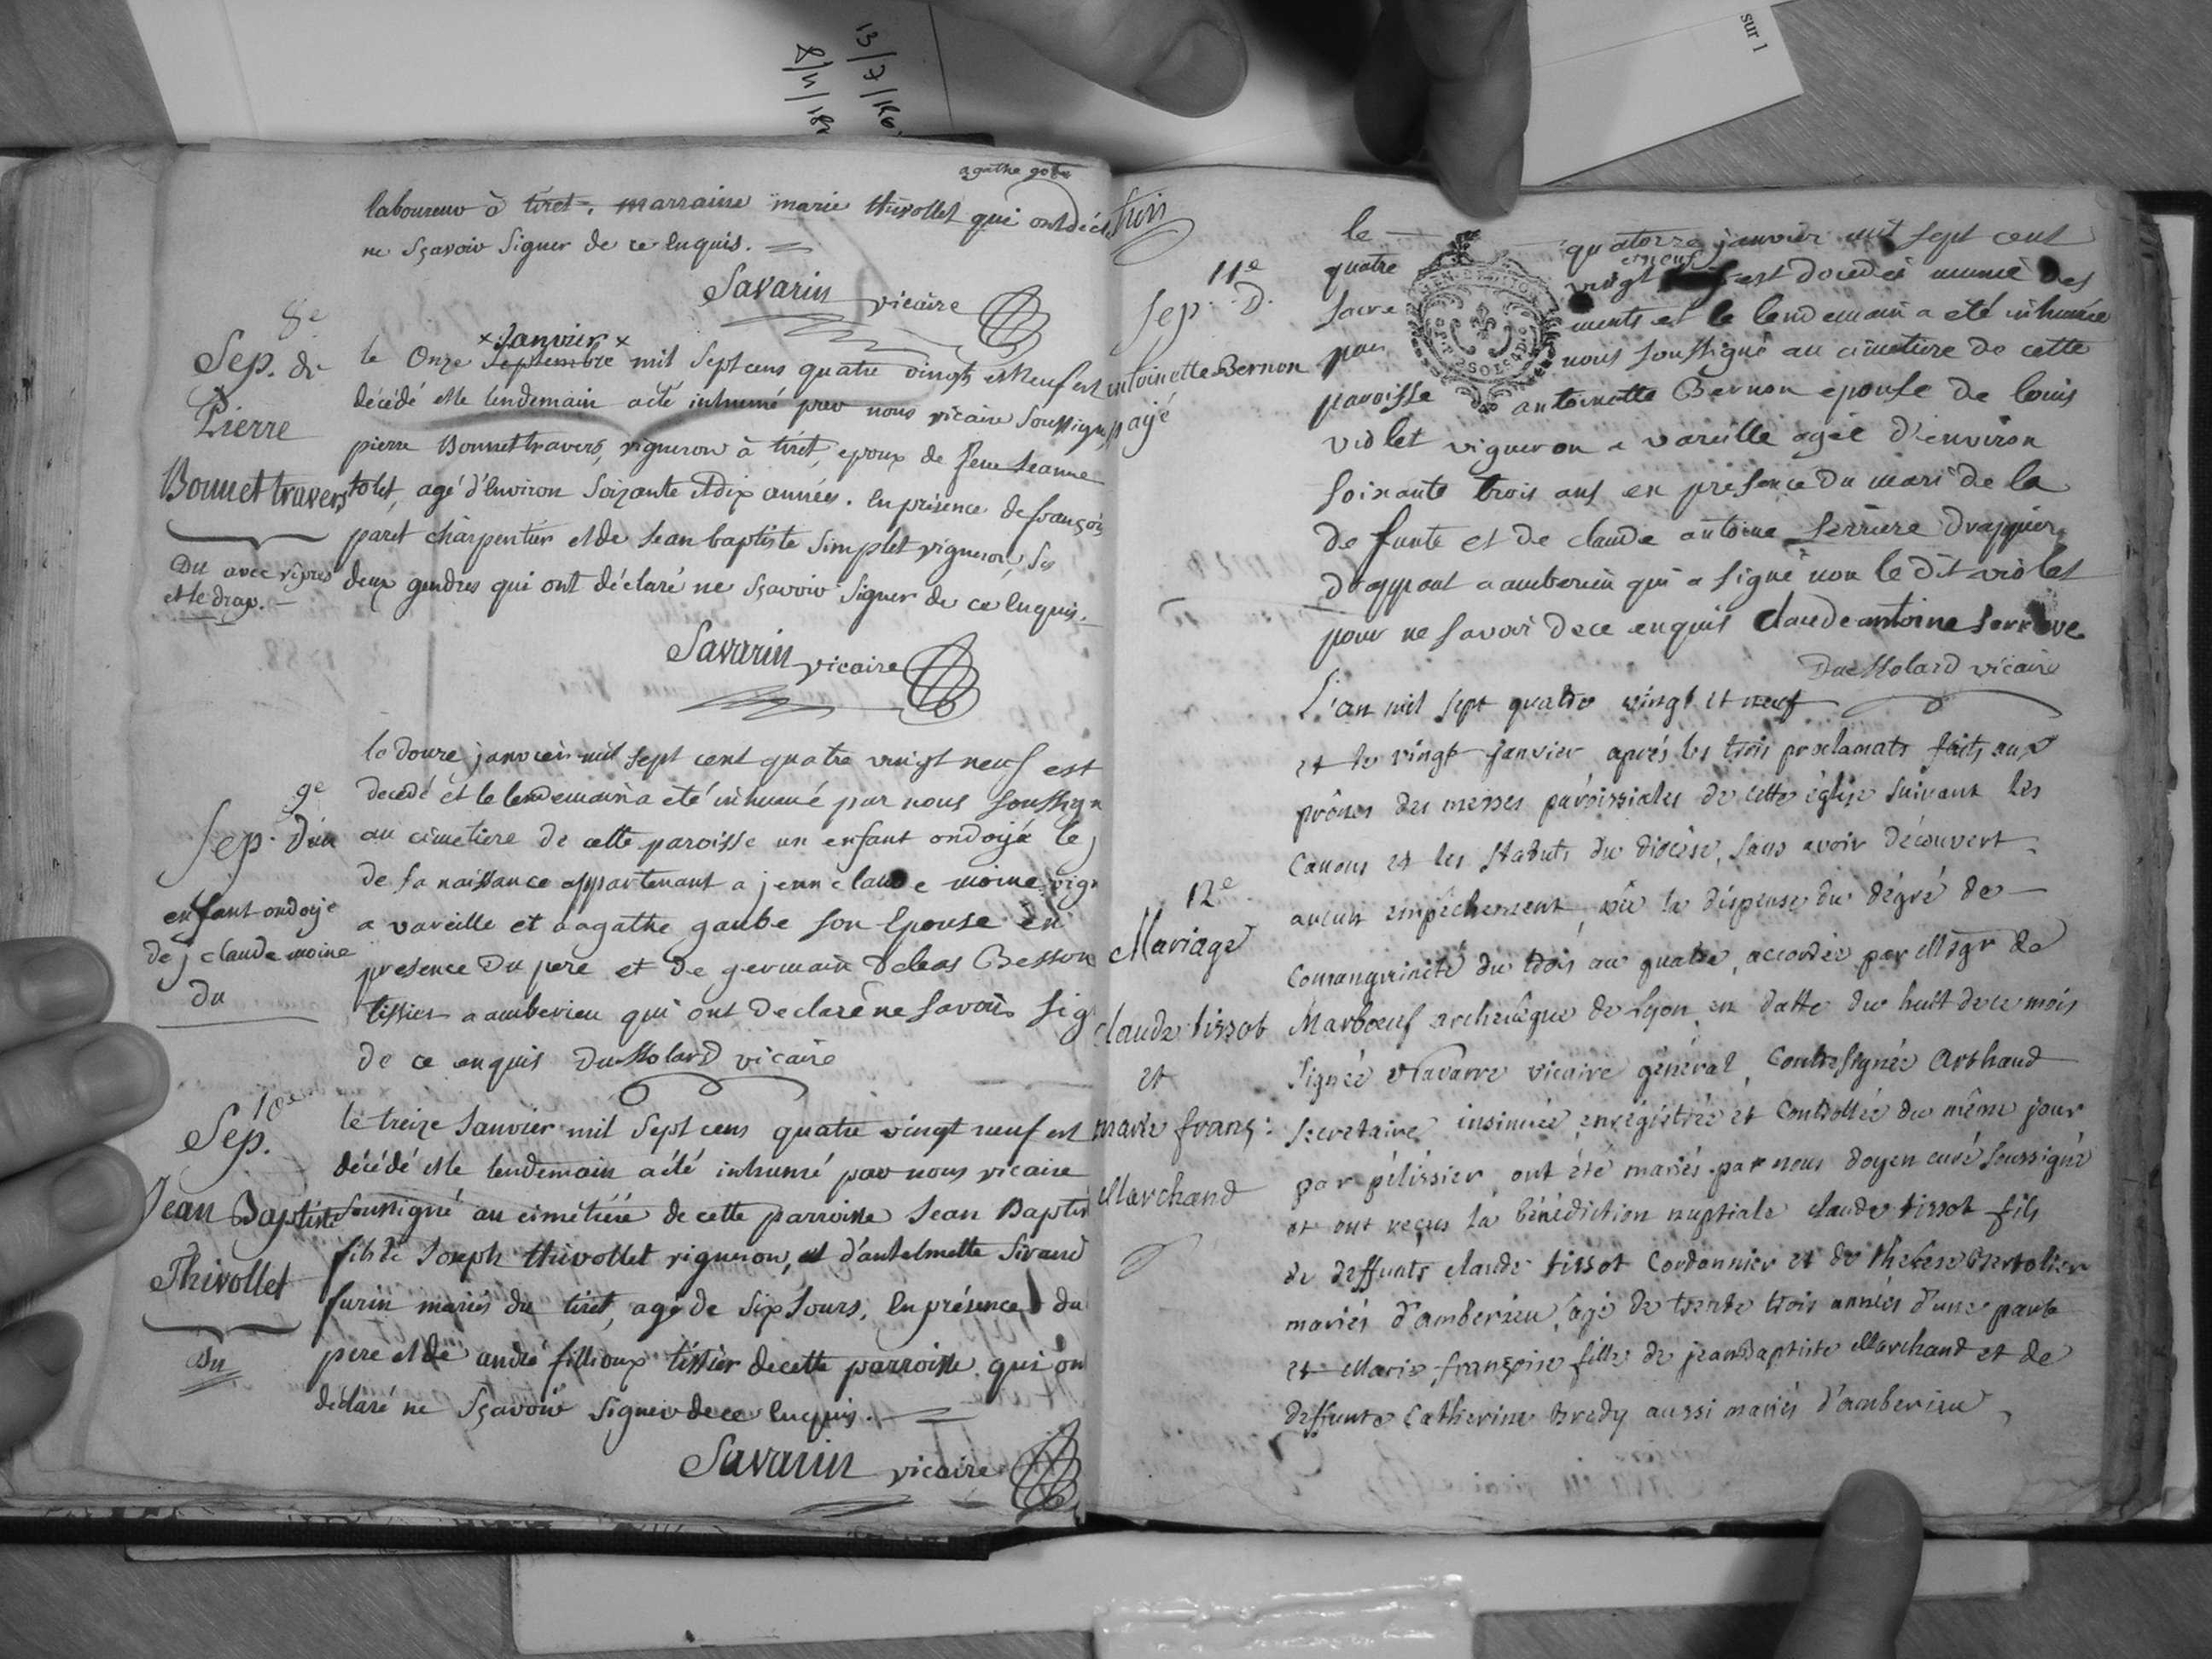 13/7/
8/11/18
sur 1
agathe gobe
laboureur à tiret. marraine marie thivollet qui ont décla
ne sçavoir signer de ce enquis.
Savarin vicaire
8e
Sep. de
Pierre
Bonnet travers
Du avec vêpres
et le drap.
x Janvier x
le Onze Septembre mil sept cens quatre vingts et neuf est
décédé et le lendemain a été inhumé par nous vicaire soussigné
pierre Bonnet travers, vigneron à tiret, epoux de feue Jeanne
tolet, agé d'environ soixante et dix années. en présence de françois
paret charpentier et de Jean baptiste simplet vigneron, ses
deux gendres qui ont déclaré ne sçavoir signer de ce enquis.
Savarin vicaire
9e
Sep. d'un
enfant ondoyé
de j claude moine
du
le douze janvier mil sept cent quatre vingt neuf est
decedé et le lendemain a eté inhumé par nous soussign
au cimetiere de cette paroisse un enfant ondoyé le j
de sa naissance appartenant a jean claude moine vign
a vareille et a agathe gaube son Epouse en
presence du pere et de germain debas Besson
tissier a amberieu qui ont declaré ne savoir sig
de ce enquis Dumolard vicaire
10e
Sep.
Jean Baptiste
Thivollet
du
le treize Janvier mil sept cens quatre vingt neuf est
décédé et le lendemain a été inhumé par nous vicaire
soussigné au cimétière de cette parroisse Jean Baptis
fils de Joseph thivollet vigneron, et d'antelmette Sivand
furin mariés du tiret, agé de six Jours, en présence du
pere et de andré fillioux tissier de cette parroisse qui on
déclaré ne sçavoir signer de ce enquis.
Savarin vicaire
trois
11e
Sep. d.
antoinette Bernon
payé
le quatorze janvier mil sept cent
et neuf
quatre vingt est decedée munie des
sacre ments et le lendemain a eté inhumée
par nous soussigné au cimetiere de cette
paroisse antoinette Bernon epouse de louis
violet vigneron a vareille agée d'environ
soixante trois ans en presence du mari de la
defunte et de claude antoine serriere drappier
drappant a amberieu qui a signé non le dit violet
pour ne savoir de ce enquis Claude antoine serrieve
Dumolard vicaire
12e
Mariage
claude tissot
et
marie franç:
Marchand
L'an mil sept quatre vingt et neuf
et le vingt janvier après les trois proclamats faits aux
prônes des messes paroissiales de cette église suivant les
canons et les statuts du diocèse, sans avoir découvert
aucun empêchement, vû la dispense du dégré de
consanguinité du trois au quatre, accordée par Msgr de
Marboeuf archevêque de Lyon en datte du huit de ce mois
signée Navarre vicaire général, Contresignée Arthaud
secretaire insinuée enregistrée et controllée du même jour
par pélissier ont été mariés par nous doyen curé soussigné
et ont reçus la bénédiction nuptiale claude tissot fils
de deffunts claude tissot Cordonnier et de therese Bertolier
mariés d'amberieu, agé de trente trois années d'une parte
et Marie françoise fille de jean Baptiste Marchand et de
deffunte Catherine bredy aussi mariés d'amberieu,